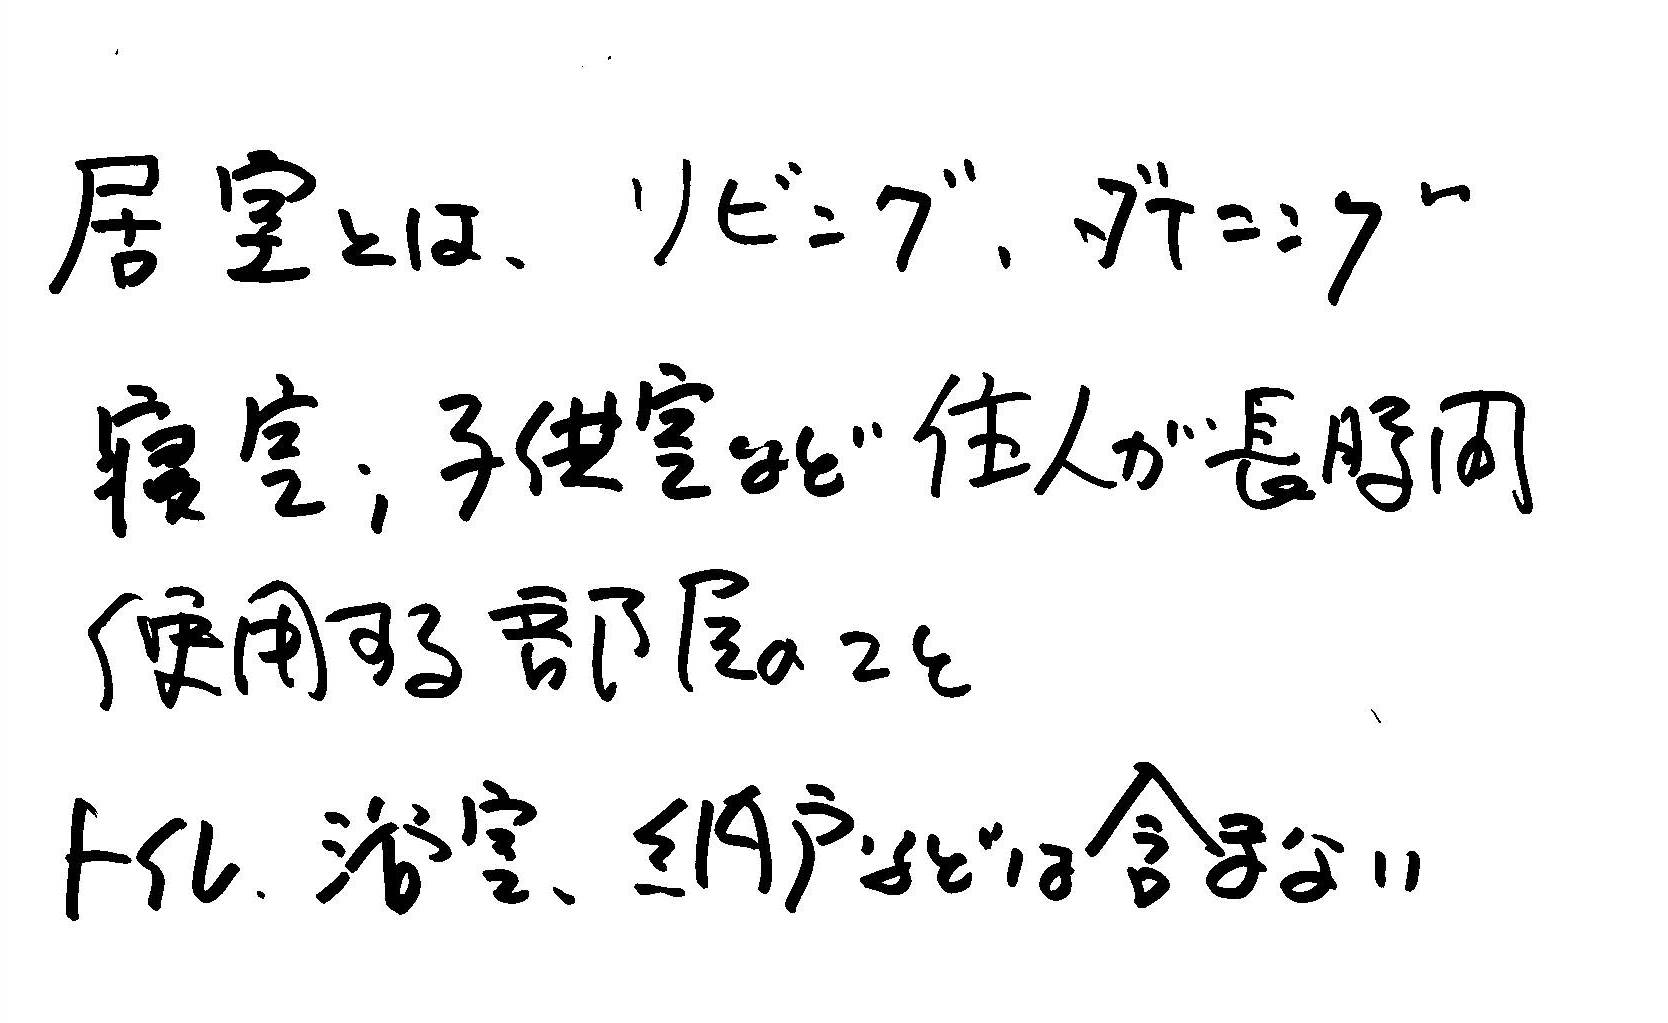 居室とは、リビング、ダイニング
寝室、子供室など住人が長時間
使用する部屋のこと
トイレ、浴室、納戸などは含まない